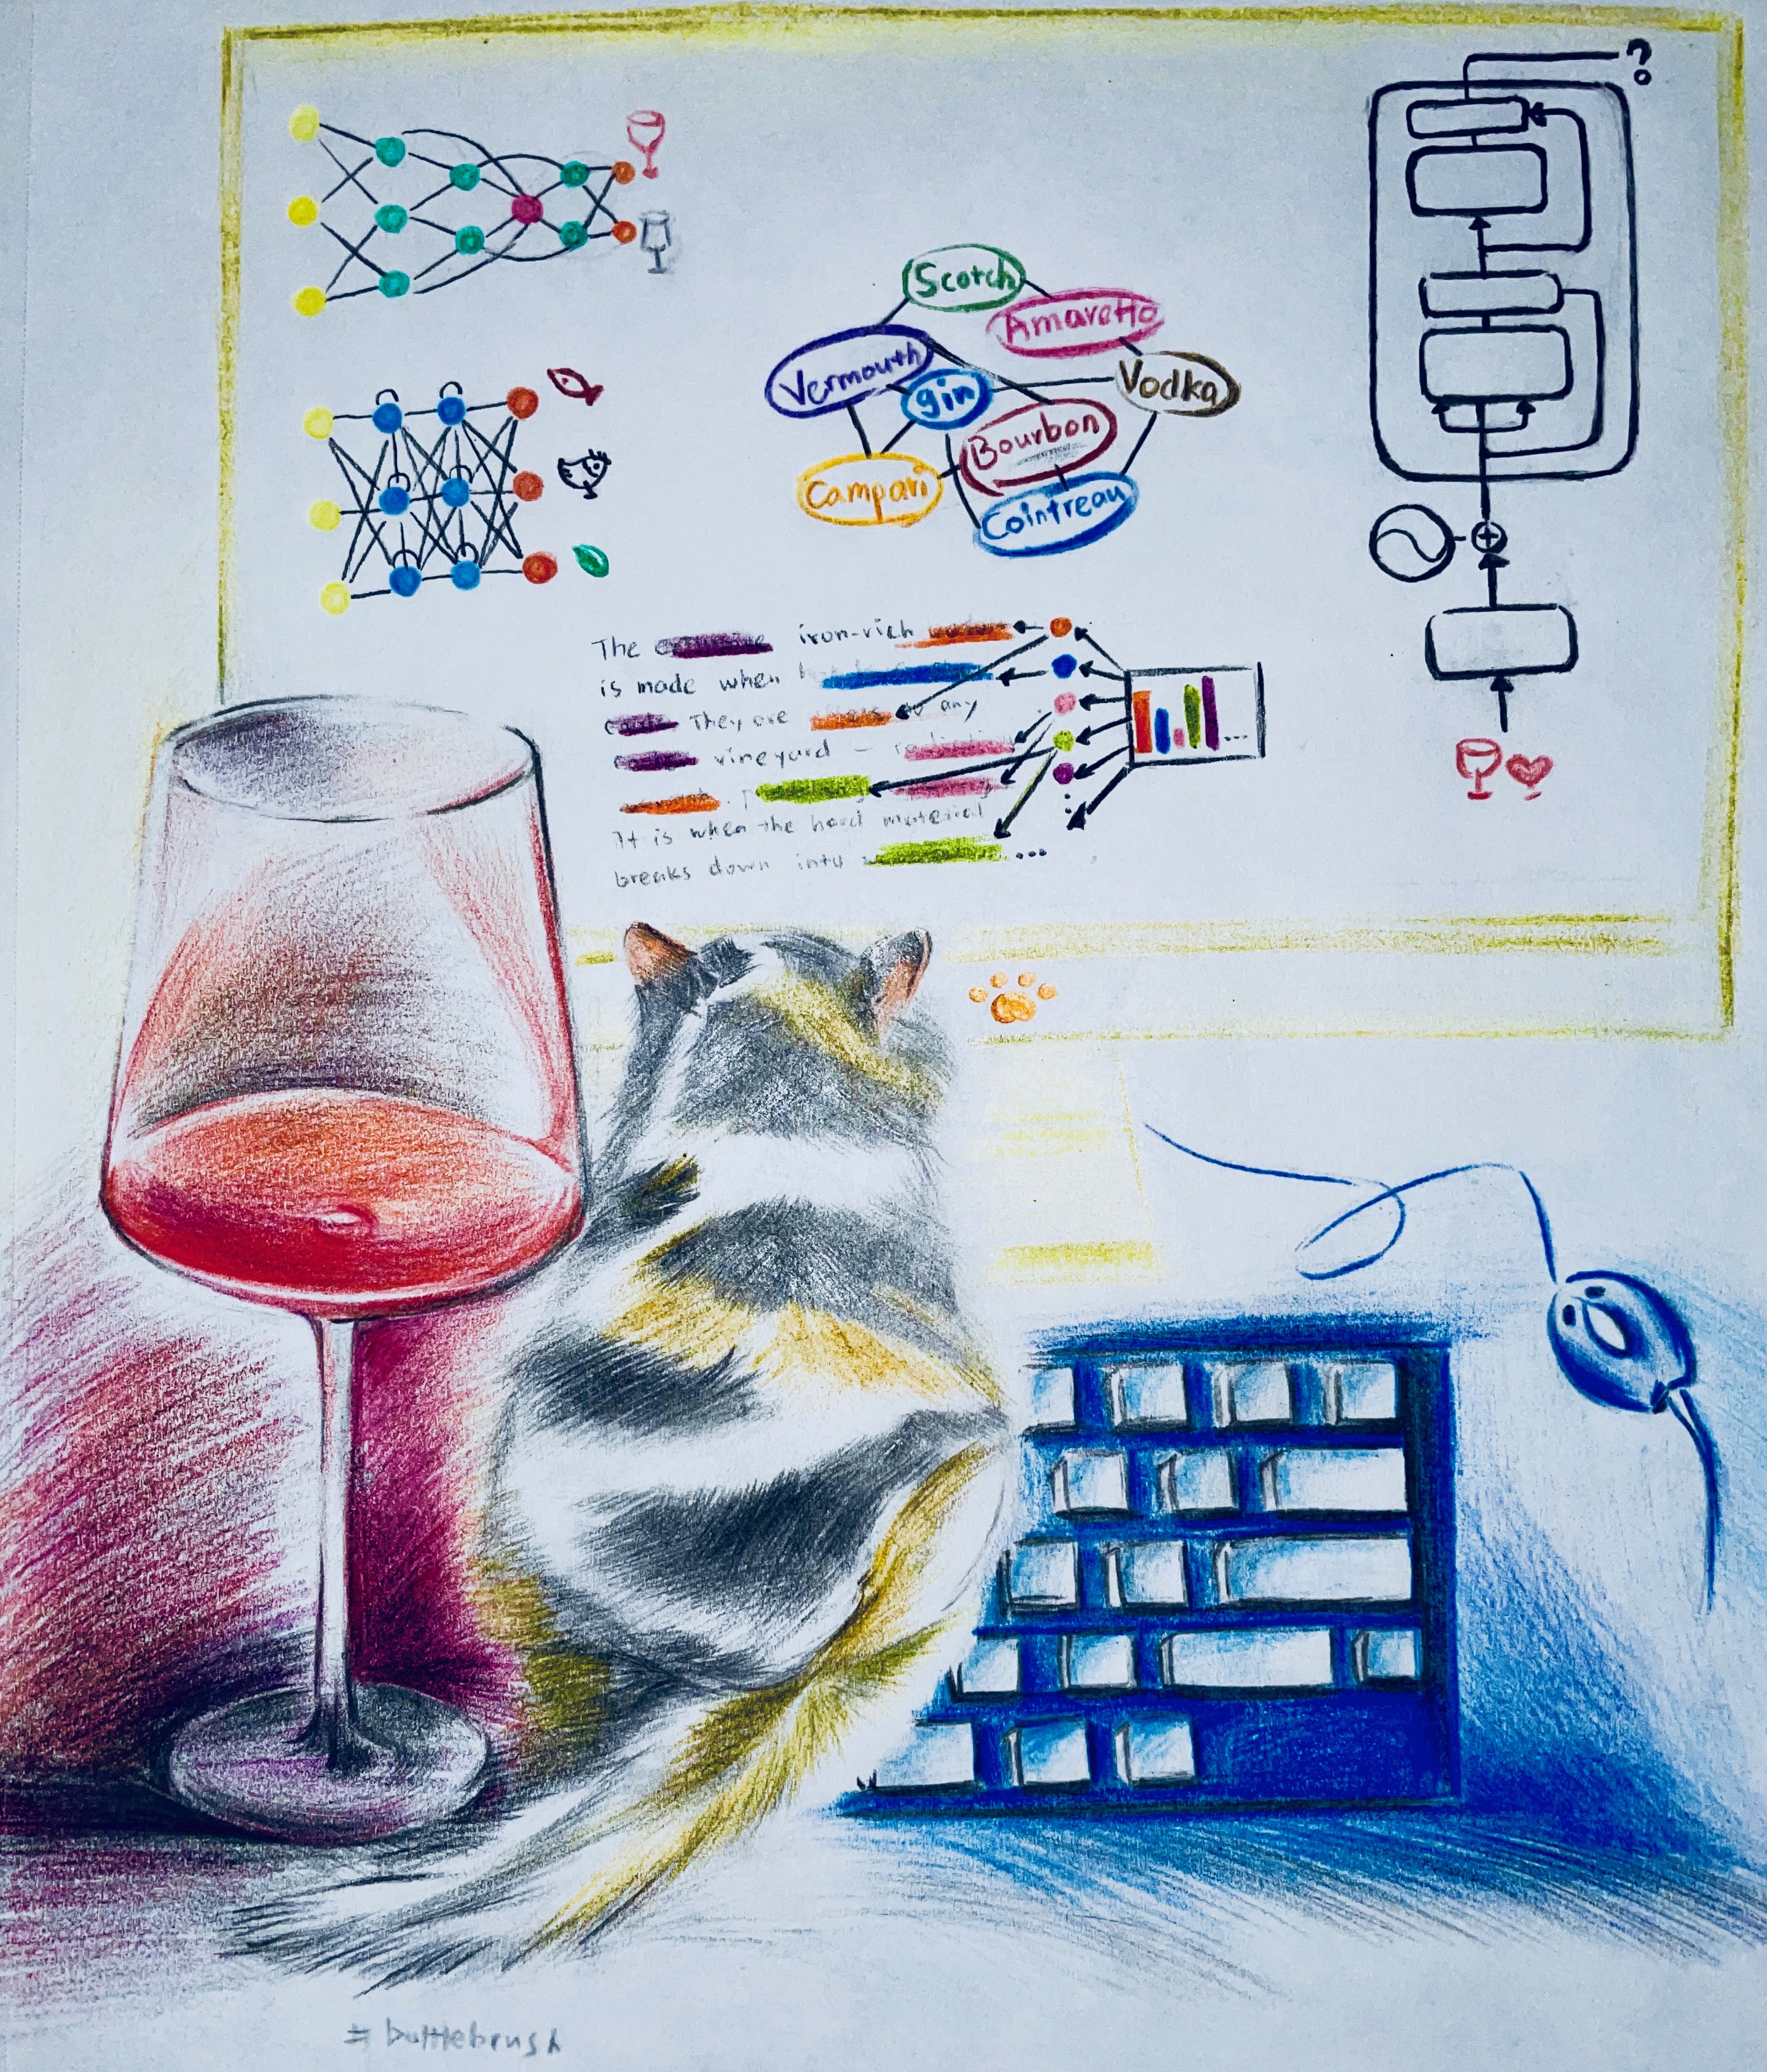 ?
Scotch
Amaretto
Vermouth
gin
Vodka
Bourbon
Campari
Cointreau
The iron-rich
is made when
They are any
vineyard –
It is when the hard material
breaks down into ...
...
#bottlebrush